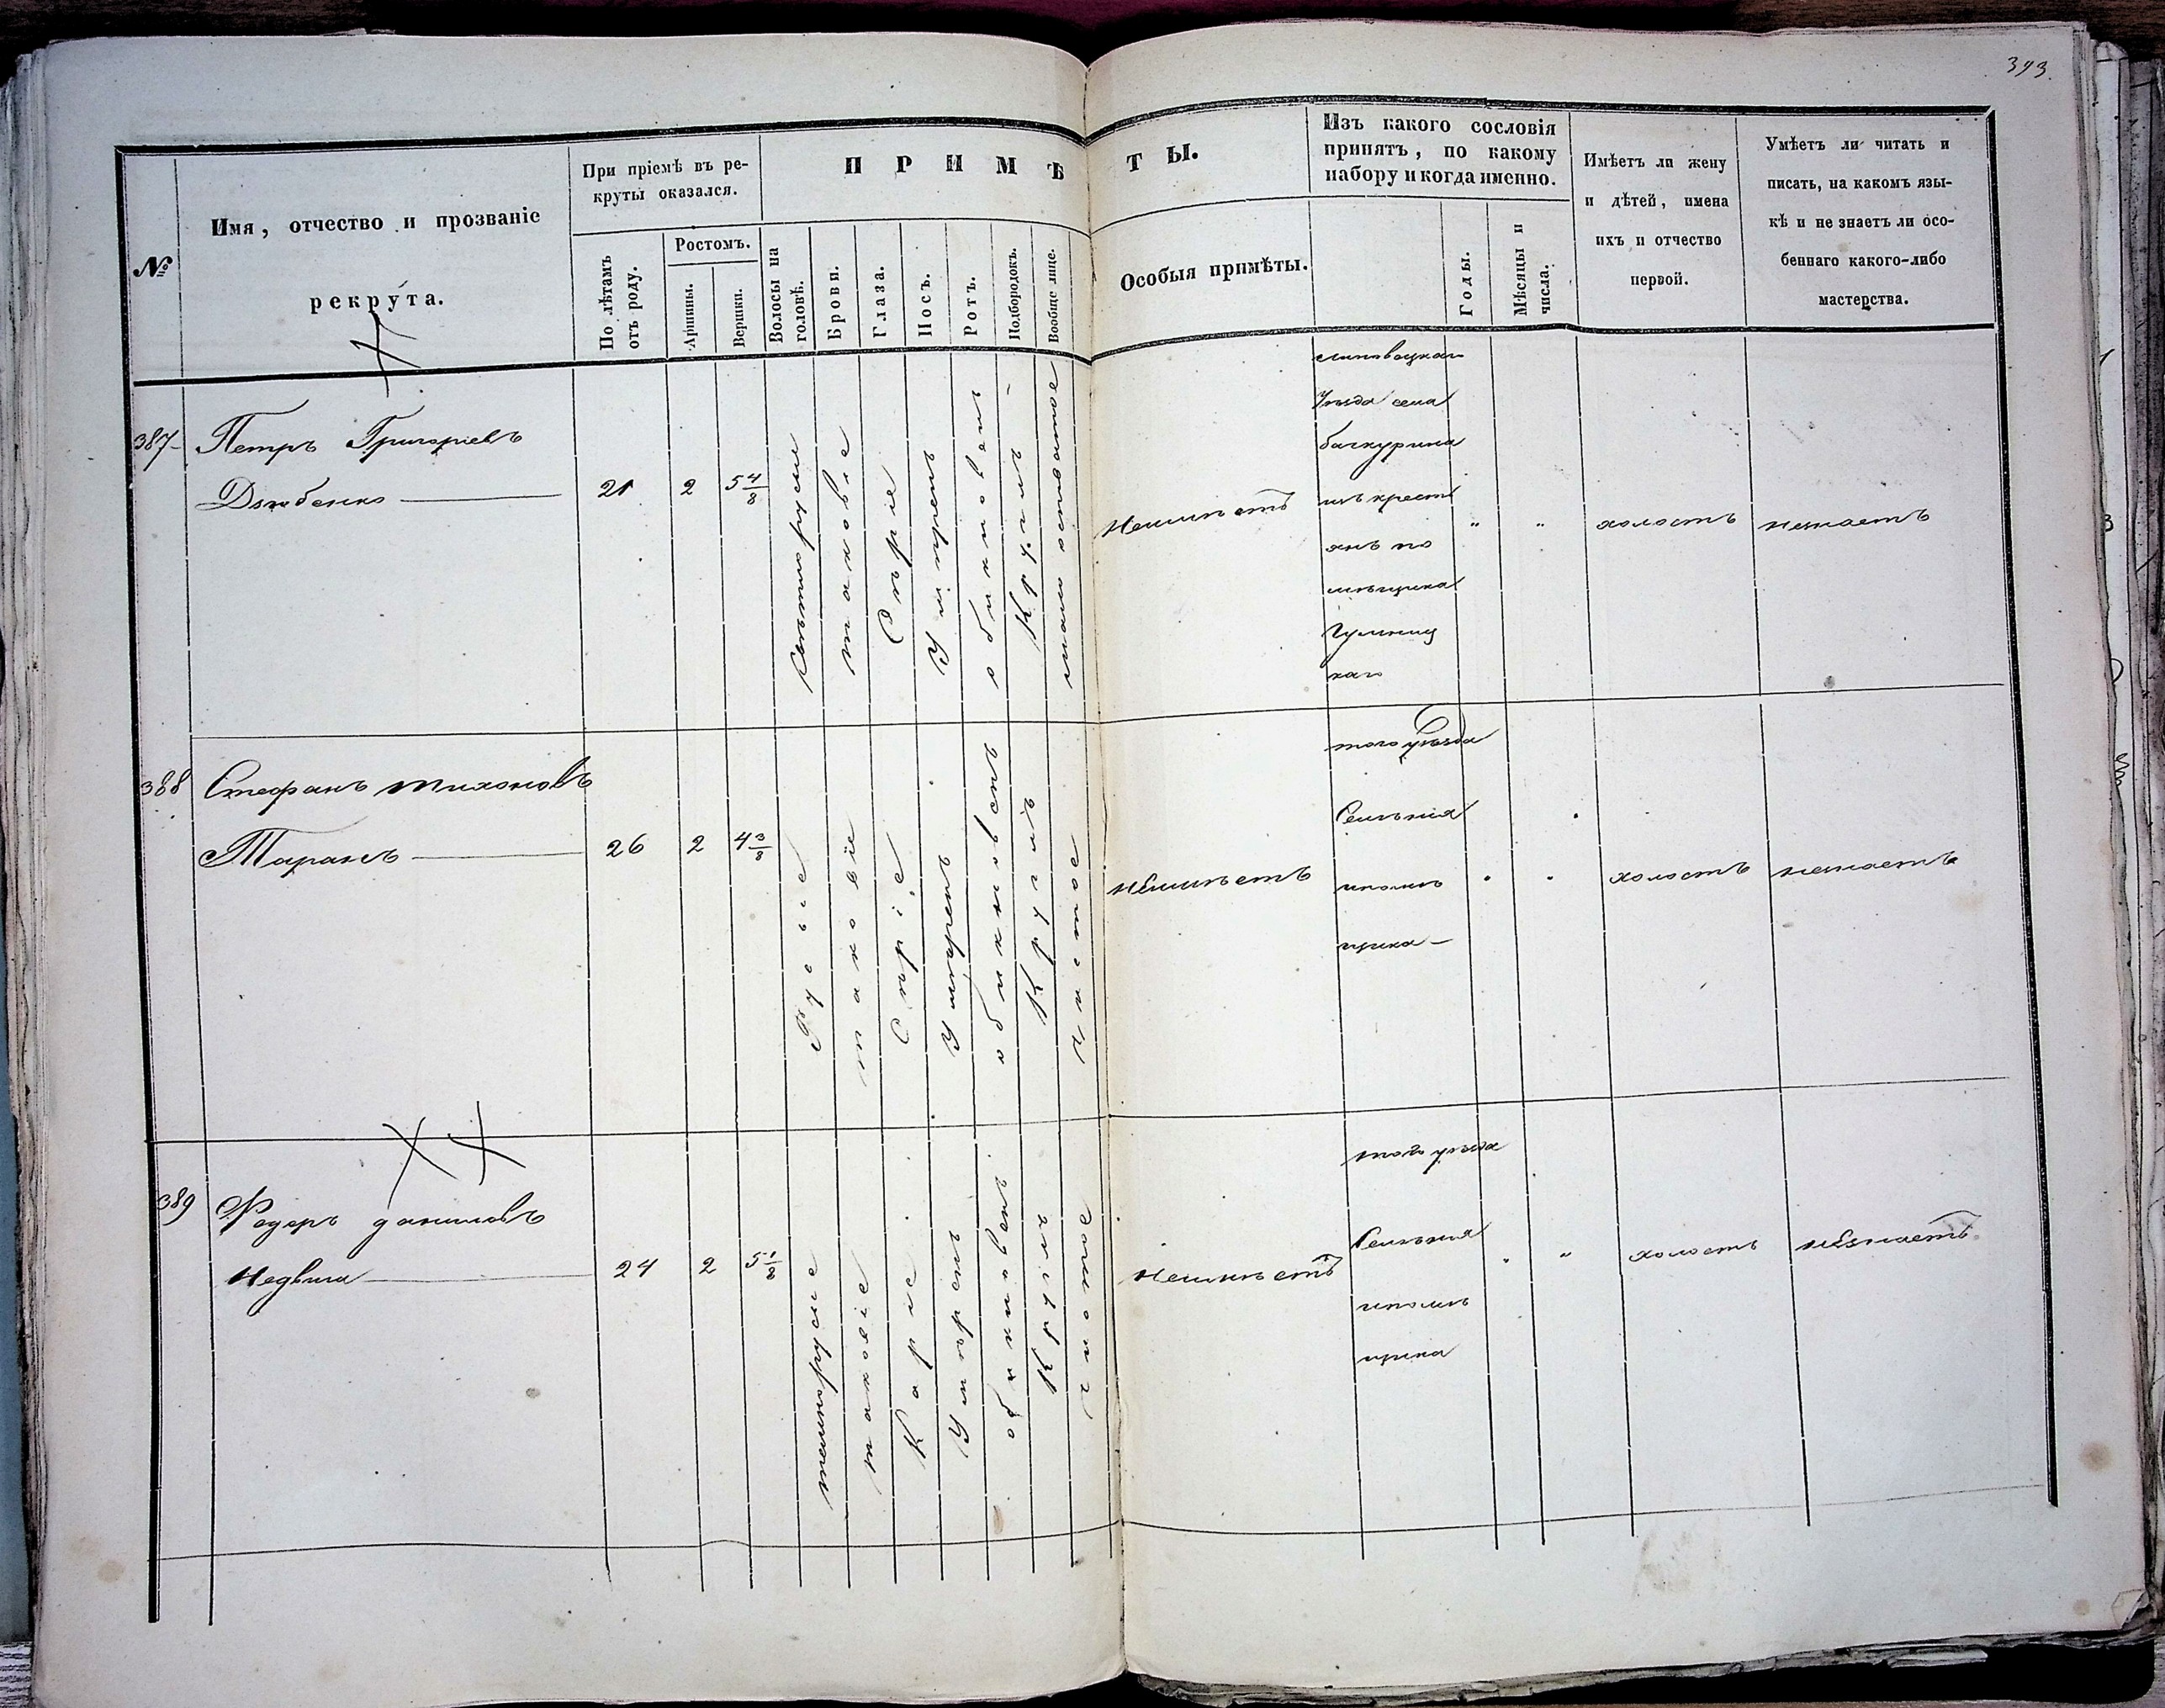 393.
№
Имя, отчество и прозваніе
рекрута.
При пріемѣ въ ре-
круты оказался.
По лѣтамъ
отъ роду.
Ростомъ.
Аршины.
Вершки.
ПРИМѢТЫ.
Волосы на
головѣ.
Брови.
Глаза.
Носъ.
Ротъ.
Подбородокъ.
Вообще лице.
Особыя примѣты.
Изъ какого сословія
принятъ, по какому
набору и когда именно.
Годы.
Мѣсяцы и
числа.
Имѣетъ ли жену
и дѣтей, имена
ихъ и отчество
первой.
Умѣетъ ли читать и
писать, на какомъ язы-
кѣ и не знаетъ ли осо-
беннаго какого-либо
мастерства.
387
Петръ Григоріевъ
21
2
5 4/8
таковіе
Сѣріе
умѣренъ
обикновенъ
Круглъ
неимѣетъ
уѣзда села
изъ крест
янъ по
мѣщика
каго
"
"
холостъ
незнаетъ
388
Стефанъ тихоновъ
Таранъ
26
2
4 3/8
Русіе
таковіе
Сѣріе
Умѣренъ
обикновенъ
Круглъ
чистое
неимѣетъ
того уѣзда
помѣ
щика
холостъ
незнаетъ
389
Федеръ даниловъ
24
2
5 1/8
темнорусые
таковіе
Каріе
Умѣренъ
обикновенъ
Круглъ
неимѣетъ
того уѣзда
помѣ
щика
"
холостъ
незнаетъ